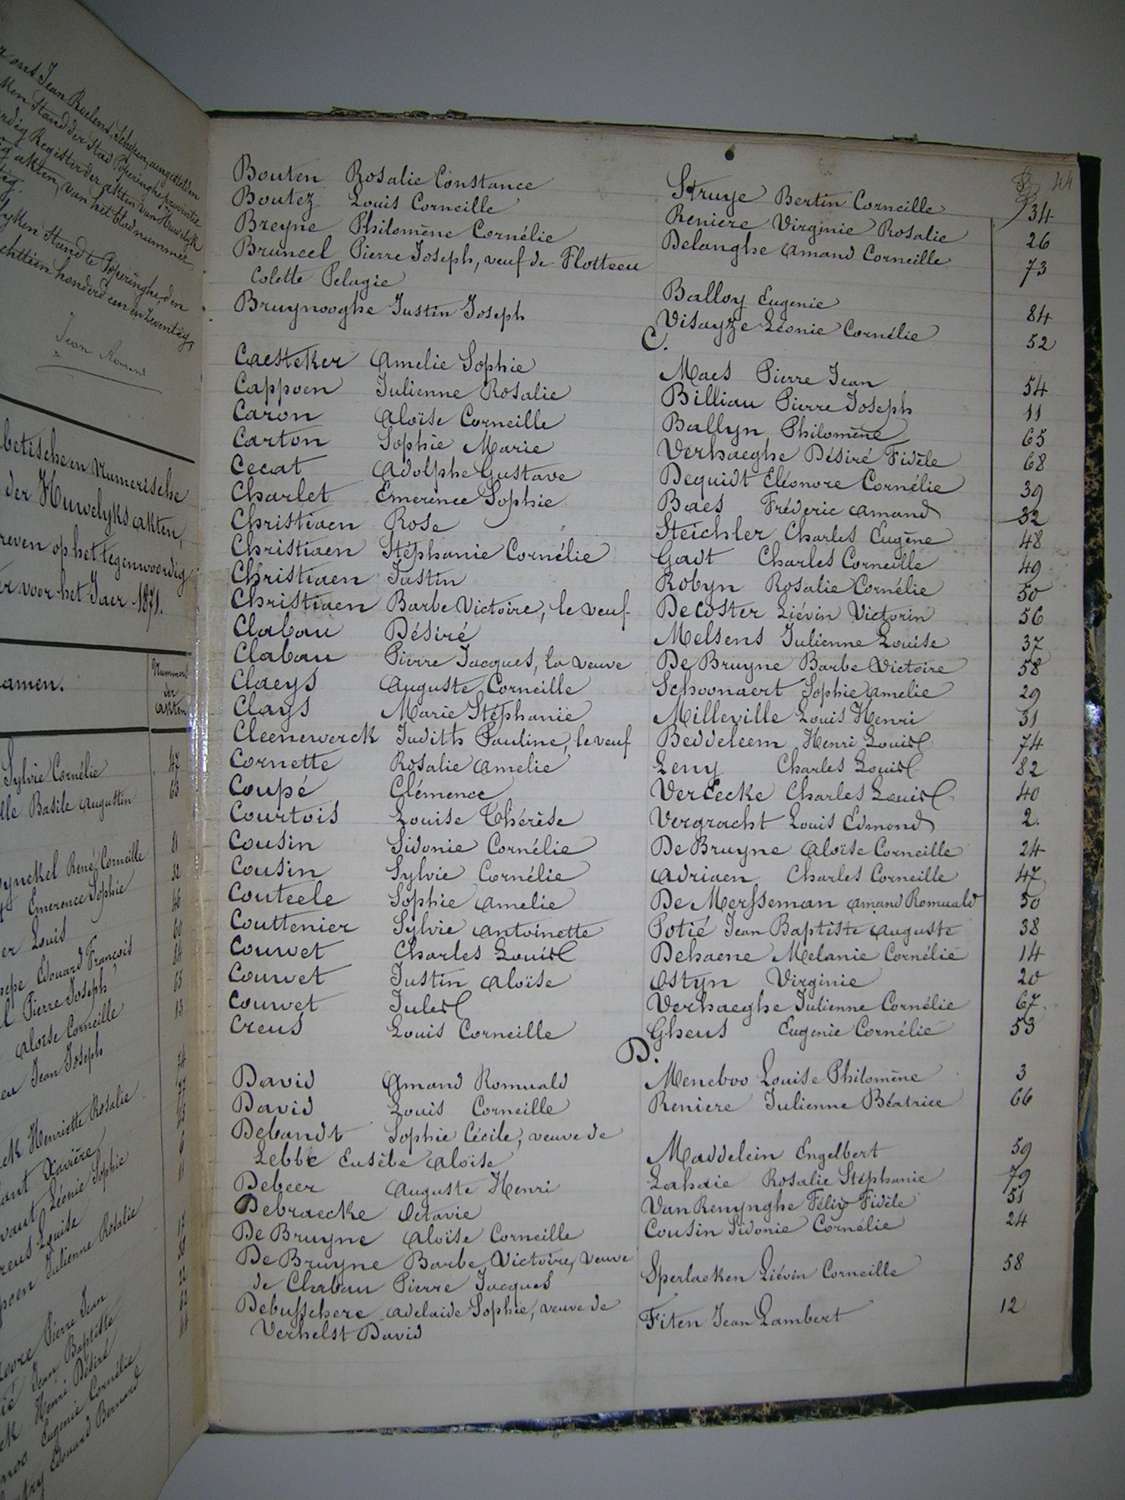 ont Jean Reelens, Schepen, aengesteld en
Stand der Stad Poperinghe provintie
Register der akten van Huwelijk
akten, van het blad nummer
Stand te Poperinghe, den
achttien honderd een en zeventig,
betische en Numerische
der Huwelyks akten,
reven op het tegenwoordig
er voor het Jaer 1871.
amen.
Nummer
der
akten
Sylvie Cornélie 47
lle Basile Augustin 63
ynckel René Corneille
Emerence Sophie
er Louis
Edouard François
Pierre Joseph
Aloïse Corneille
Jean Joseph
Henriette Rosalie
Xavière
Léonie Sophie
Louise
Julienne Rosalie
Pierre Jean
Jean Baptiste
Henri Désiré
Eugenie Cornélie
Edouard Bernard
44
Bouten Rosalie Constance Struye Bertin Corneille 34
Boutez Louis Corneille Reniere Virginie Rosalie 26
Breyne Philomène Cornélie Delanghe Amand Corneille 73
Bruneel Pierre Joseph, veuf de Flotteeu
Colette Pelagie Balloy Eugenie 84
Bruynooghe Justin Joseph Visayze Léonie Cornélie 52
C.
Caesteker Amelie Sophie Maes Pierre Jean 54
Cappoen Julienne Rosalie Billiau Pierre Joseph 11
Caron Aloïse Corneille Ballyn Philomène 65
Carton Sophie Marie Verhaeghe Désiré Fidèle 68
Cecat Adolphe Gustave Dequidt Eléonore Cornélie 39
Charlet Emerence Sophie Baes Fréderic Amand 32
Christiaen Rose Steichler Charles Eugène 48
Christiaen Stéphanie Cornélie Gadt Charles Corneille 49
Christiaen Justin Robyn Rosalie Cornélie 50
Christiaen Barbe Victoire, le veuf De Coster Liévin Victorin 56
Clabau Désiré Melsens Julienne Louise 37
Clabau Pierre Jacques, la veuve De Bruyne Barbe Victoire 58
Claeys Auguste Corneille Schoonaert Sophie Amelie 29
Clays Marie Stéphanie Milleville Louis Henri 31
Cleenewerck Judith Pauline, le veuf Beddeleem Henri Louis 74
Cornette Rosalie Amelie Leny Charles Louis 82
Coupé Clémence Vercecke Charles Louis 40
Courtois Louise Thérèse Vergracht Louis Edmond 2.
Cousin Sidonie Cornélie De Bruyne Aloïse Corneille 24
Cousin Sylvie Cornélie Adriaen Charles Corneille 47
Couteele Sophie Amelie De Mersseman Amand Romuald 30
Couttenier Sylvie Antoinette Potié Jean Baptiste Auguste 38
Couwet Charles Louis Dehaene Melanie Cornélie 14
Couwet Justin Aloïse Ostyn Virginie 20
Couwet Jules Verhaeghe Julienne Cornélie 67
Creus Louis Corneille Gheus Eugenie Cornélie 53
D.
David Amand Romuald Meneboo Louise Philomène 3
David Louis Corneille Reniere Julienne Béatrice 66
Debandt Sophie Cécile, veuve de
Lebbe Eusèbe Aloïse Maddelein Engelbert 59
Debeer Auguste Henri Lahaie Rosalie Stéphanie 79
Debraecke Octavie Van Renynghe Félix Fidèle 51
De Bruyne Aloïse Corneille Cousin Sidonie Cornélie 24
De Bruyne Barbe Victoire, veuve
de Clabau Pierre Jacques Sperlaeken Liévin Corneille 58
Debusschere Adelaide Sophie, veuve de
Verhelst David Fiten Jean Lambert 12